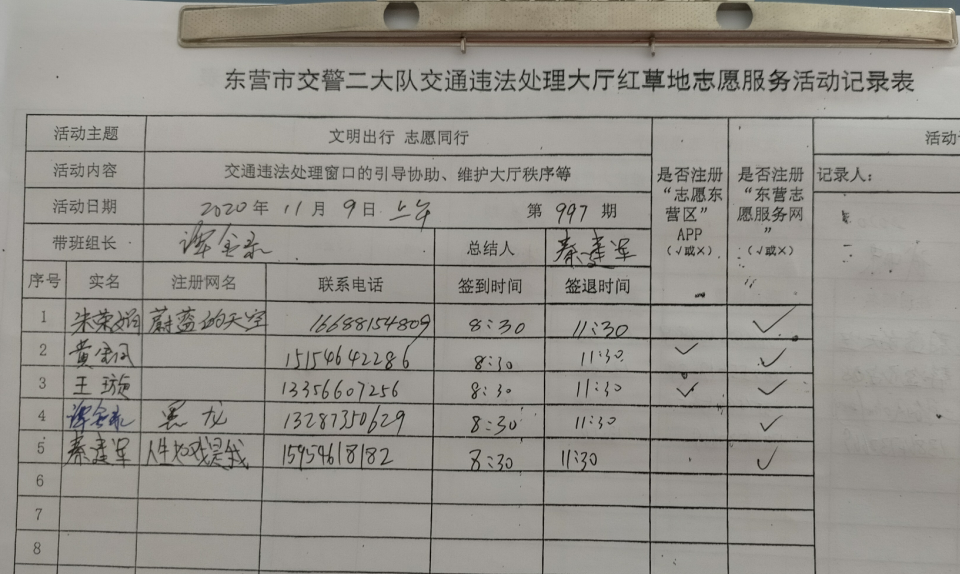 东营市交警二大队交通违法处理大厅红草地志愿服务活动记录表
活动主题 文明出行 志愿同行
活动内容 交通违法处理窗口的引导协助、维护大厅秩序等
活动日期 2020年 11月 9日 上午 第 997 期
带班组长 总结人 秦建军
是否注册“志愿东营区”APP（√或×）
是否注册“东营志愿服务网”（√或×）
活动
记录人：
序号 实名 注册网名 联系电话 签到时间 签退时间
1 朱荣娟 蔚蓝的天空 16688154809 8:30 11:30 √
2 15154642286 8:30 11:30 √ √
3 王璇 13356607256 8:30 11:30 √ √
4 黑龙 13287350629 8:30 11:30 √
5 秦建军 15954618182 8:30 11:30 √
6
7
8